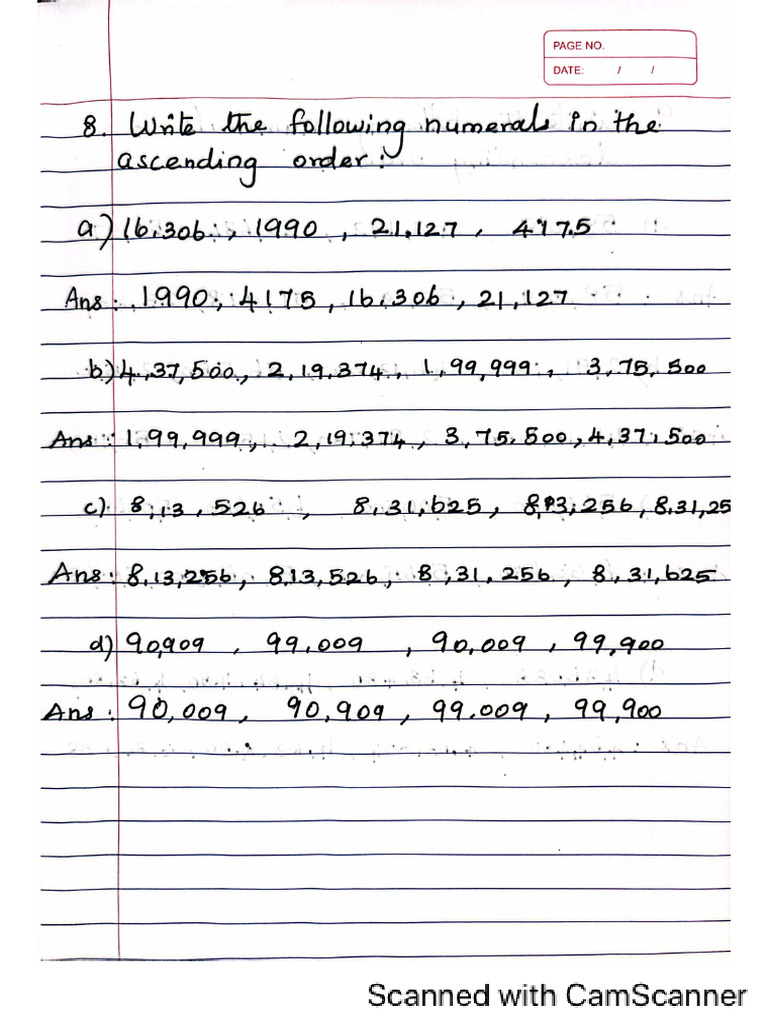 PAGE NO.
DATE: / /
8. Write the following numerals in the
ascending order:
a) 16,306, 1990, 21,127, 4175
Ans: 1990, 4175, 16,306, 21,127
b) 4,37,500, 2,19,374, 1,99,999, 3,75,500
Ans: 1,99,999, 2,19,374, 3,75,500, 4,37,500
c) 8,13,526, 8,31,625, 8,13,256, 8,31,25
Ans: 8,13,256, 8,13,526, 8,31,256, 8,31,625
d) 90,909, 99,009, 90,009, 99,900
Ans: 90,009, 90,909, 99,009, 99,900
Scanned with CamScanner